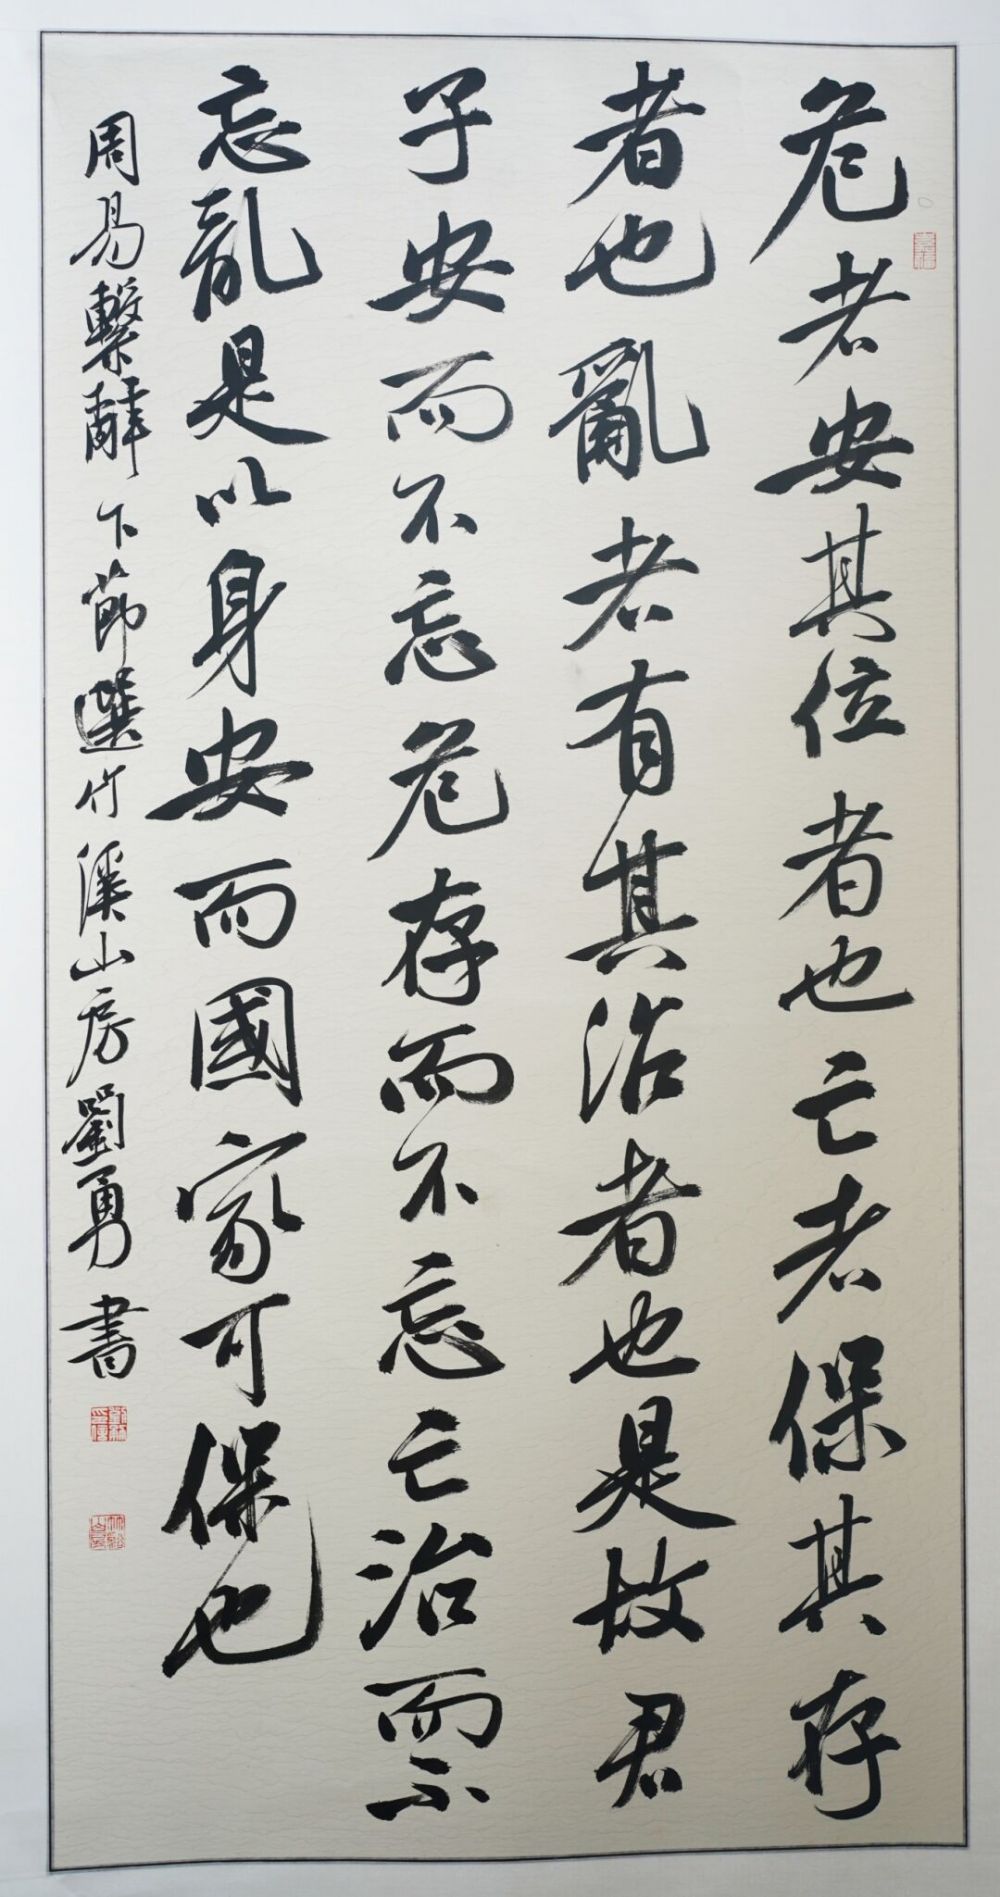 危者安其位者也亡者保其存
者也亂者有其治者也是故君
子安而不忘危存而不忘亡治而不
忘亂是以身安而國家可保也
周易繫辭下節選竹溪山房劉勇書